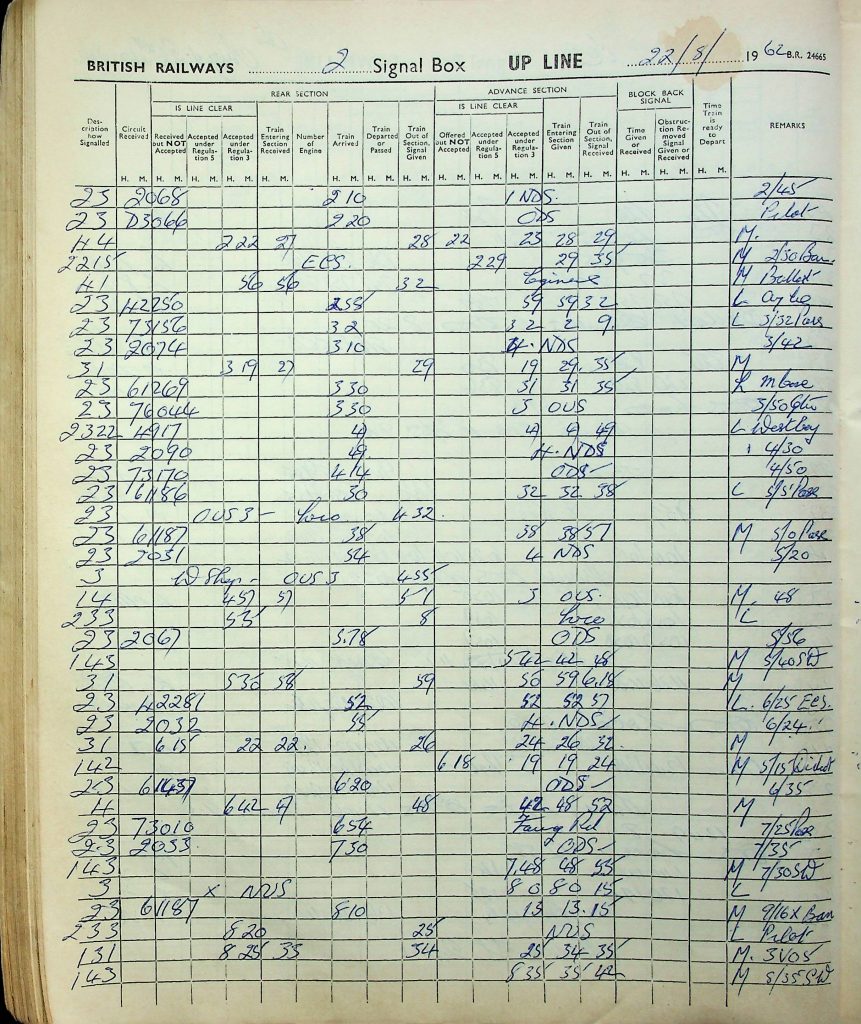 BRITISH RAILWAYS 2 Signal Box UP LINE 22/8/ 1962 B.R. 24665
REAR SECTION ADVANCE SECTION BLOCK BACK SIGNAL
IS LINE CLEAR IS LINE CLEAR
Description how Signalled Circuit Received Received but NOT Accepted Accepted under Regulation 5 Accepted under Regulation 3 Train Entering Section Received Number of Engine Train Arrived Train Departed or Passed Train Out of Section, Signal Given Offered but NOT Accepted Accepted under Regulation 5 Accepted under Regulation 3 Train Entering Section Given Train Out of Section, Signal Received Time Given or Received Obstruction Removed Signal Given or Received Time Train is ready to Depart REMARKS
H. M. H. M. H. M. H. M. H. M. H. M. H. M. H. M. H. M. H. M. H. M. H. M. H. M. H. M. H. M. H. M.
23 2068 2 10 1 NDS. 2/45
23 D3066 2 20 ODS Pilot
44 2 22 27 28 22 23 28 29 M.
2215 ECS. 2 29 29 35 M 2/50 Ban.
41 56 56 3 2 Engineers M Ballast
23 42250 2 55 59 59 3 2 L
23 73156 3 2 3 2 2 9 L 3/32 Pass
23 2074 3 10 4. NDS 3/42
31 3 19 27 29 19 29. 35 M
23 61269 3 30 31 31 35
23 76044 3 30 3 OUS 3/50
2322 4917 49 49 49 49 L West Bay
23 2090 49 4. NDS 4/30
23 73170 4 14 ODS 4/50
23 61186 30 32 32 38 L 5/5 Pass
23 OUS 3 - Loco 4 32
23 61187 38 38 38 57 M 5/0 Pass
23 2051 54 4 NDS 5/20
3 W Shop - OUS 3 4 55
14 4 57 57 5 1 3 OUS. M. 48
233 5 35 8 Loco L
23 2067 5.78 ODS 5/56
143 5 42 42 48 M 5/40 SW
31 5 56 58 59 56 59 6.18 M
23 42281 52 52 52 57 L. 6/25 ECS.
23 2032 55 4. NDS 6/24
31 6 15 22 22. 26 24 26 32 M
142 6 18 19 19 24 M 5/15
23 61437 6 20 ODS 6/35
4 6 42 47 48 42 48 52 M
23 73010 6 54 7/25 Pass
23 2033 7 30 ODS 7/35
143 7.48 48 55 M 7/30 SW
3 X NUS 8 0 8 0 15 L
23 61187 8 10 13 13. 15 M 9/16 X Ban
233 8 20 25 NUS L Pilot
131 8 25 33 34 25 34 35 M. 3V05
143 8 35 35 42 M 8/35 SW